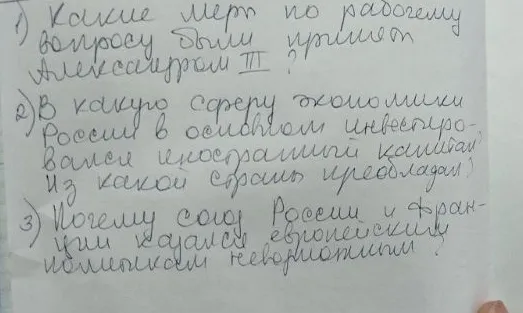 1) Какие меры по рабочему
вопросу были приняты
Александром III ?
2) В какую сферу экономики
России в основном инвестиро-
вался иностранный капитал?
Из какой страны преобладал?
3) Почему союз России и Фран-
ции казался европейским
политикам невозможным ?